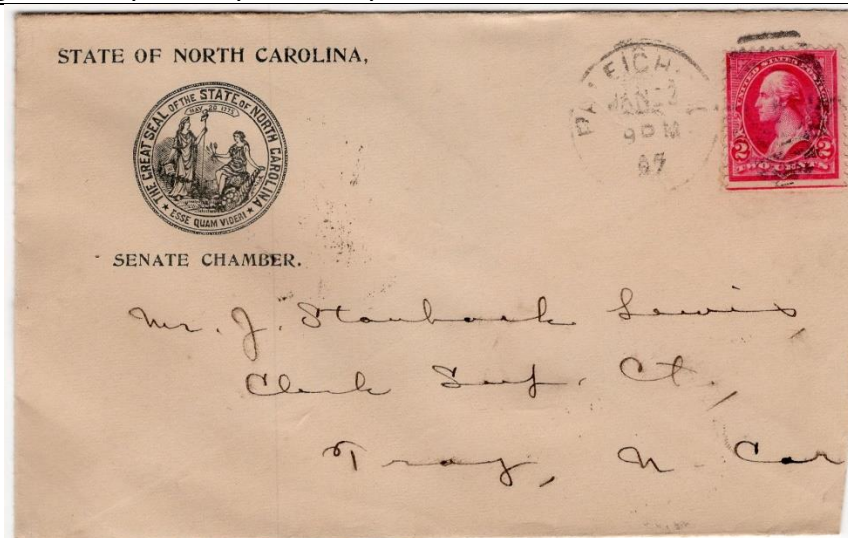 STATE OF NORTH CAROLINA,
THE GREAT SEAL OF THE STATE OF NORTH CAROLINA
MAY 20 1775
★ ESSE QUAM VIDERI ★
SENATE CHAMBER.
RALEIGH.
JAN
9 PM
97
UNITED STATES
2 2
TWO CENTS
Mr. J. Stanback Lewis,
Clerk Sup. Ct.,
Troy, N. Car